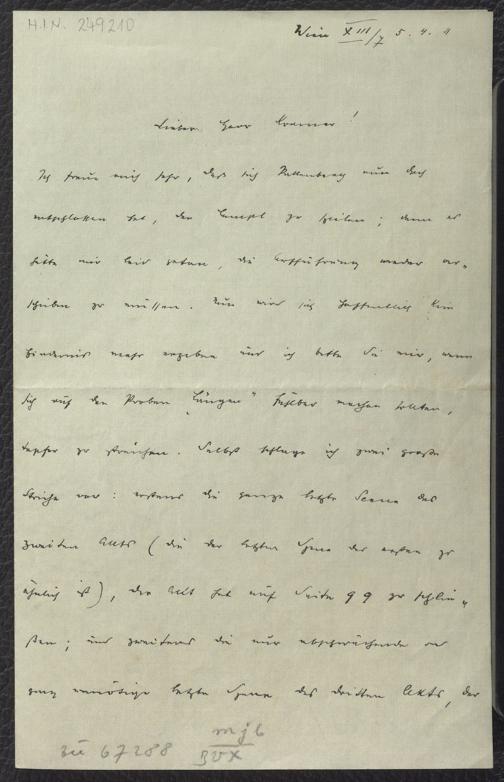 H.I.N. 249210
Wien XIII/7 5. 4. 9
Lieber Herr Kramer!
Ich freue mich sehr, daß sich Pallenberg nun doch
entschlossen hat, den Lampl zu spielen; denn es
hätte mir leid getan, die Aufführung wieder ver-
schieben zu müssen. Nun wird sich hoffentlich kein
Hindernis mehr ergeben und ich bitte Sie nur, wenn
sich auf den Proben "Längen" fühlbar machen sollten,
tapfer zu streichen. Selbst schlage ich zwei große
Striche vor: erstens die ganze letzte Scene des
zweiten Akts (die der letzten Szene des ersten zu
ähnlich ist), der Akt hat auf Seite 99 zu schlie-
ßen; und zweitens die nur abschwächende und
ganz unnötige letzte Szene des dritten Akts, der
zu 67288